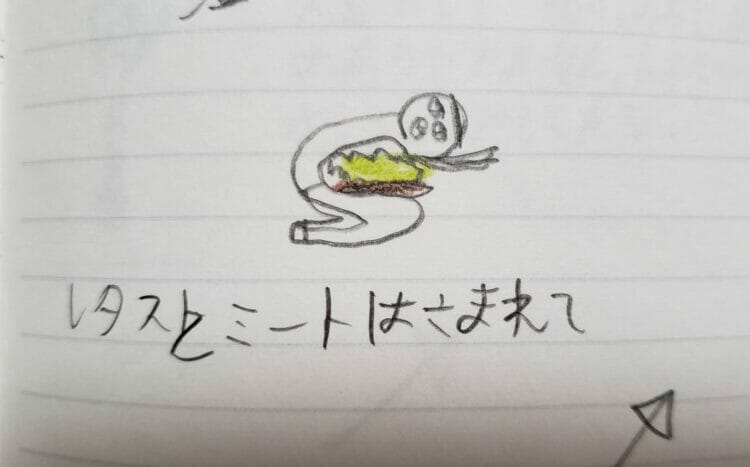 レタスとミートはさまれて